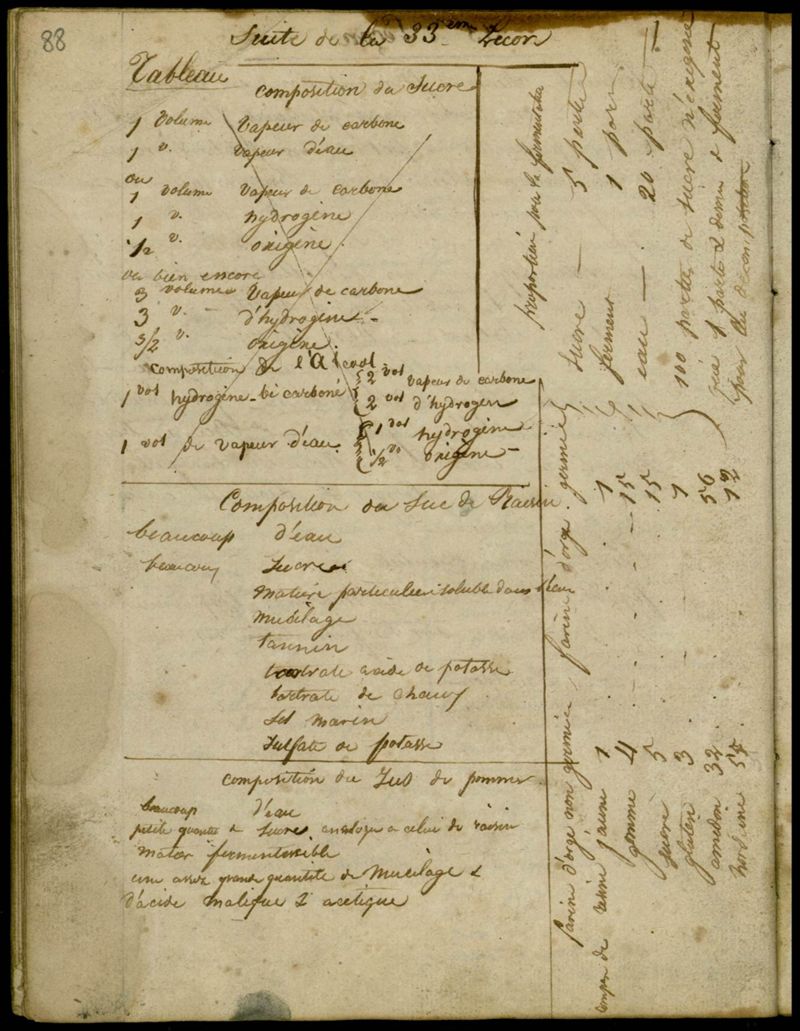 88
Suite de la 33eme Lecon
Tableau
composition du Sucre
1 volume vapeur de carbone
1 v. vapeur d'éau
ou
1 volume vapeur de carbone
1 v. hydrogène
1/2 v. oxigène
ou bien encore
3 volumes vapeur de carbone
3 v. d'hydrogène
3/2 v. oxigène.
composition de l'Alcool
1 vol hydrogène bi carboné 2 vol vapeur de carbone
2 vol d'hydrogen
1 vol de vapeur d'éau 1 vol hydrogène
1/2 vo oxigène
Composition du Suc de Raisin
beaucoup d'eau
beaucoup Sucre
matière particulière soluble dans l'eau
mucilage
tannin
tartrate acide de potasse
tartrate de chaux
Sel marin
Sulfate de potasse
composition du Jus de pommes
beaucoup d'eau
petite quantité de Sucre, analogue a celui de raisin
matier fermentessible
une assez grande quantité de Mucilage &
d'acide malique & acétique
proportion pour la fermentation
sucre — 5 partie
ferment 1 part
eau — 20 parts —
100 parties de sucre n'éxigent
que 1 partie & demie de ferment
pour
farine d'orge non germée farine d'orge germée
resine jaune 1 1
gomme 4 15
sucre 5 15
gluten 3 1
amidon 32 56
hordéine 55 12